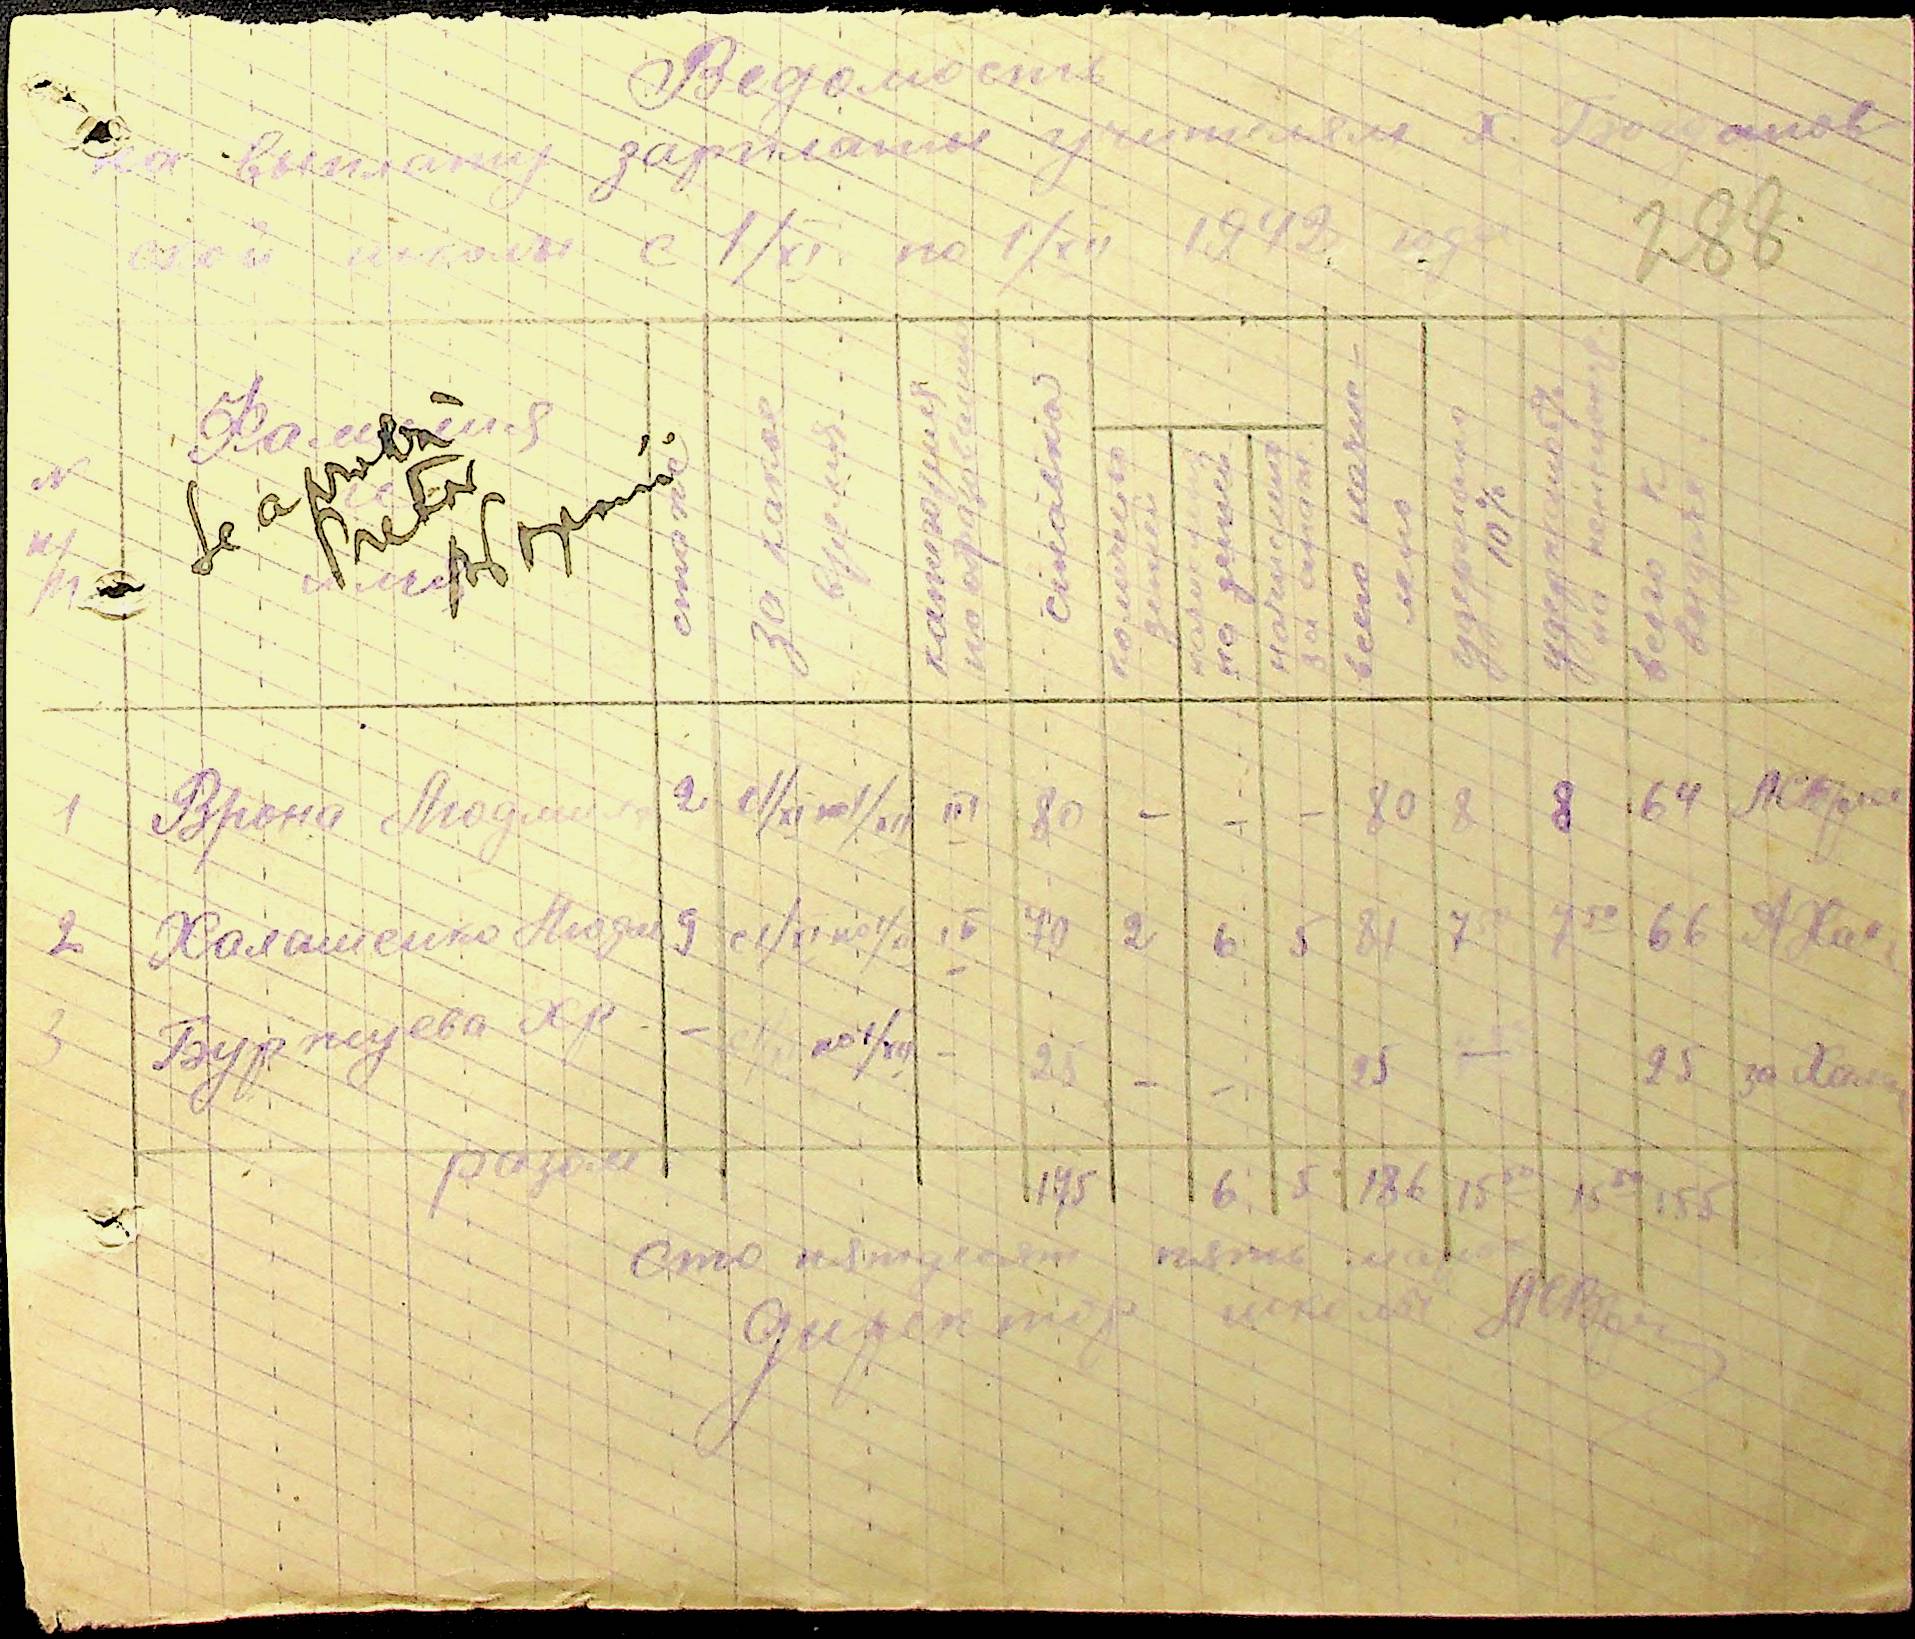 Ведомость
на выплату зарплаты учителям х. Богданов
ской школы с 1/XI по 1/XII 1942 года
288
N п/п Фамилия и имя стаж за какое время категория по образованию ставка количество детей начислено на детей всего начислено удержано 10% удержано всего к выдаче
Se aprobă
1 Врона Людмила 2 с 1/XI по 1/XII III 80 - - - 80 8 8 64
2 Халашенко Людм 9 с 1/XI по 1/XII III 70 2 6 5 81 7 50 7 50 66
3 Бурпуева Хр - с 1/XI по 1/XII - 25 - - 25 - 25 за
разом 175 6 5 186 15 50 15 50 155
сто пятдесят пять марок
Директор школы